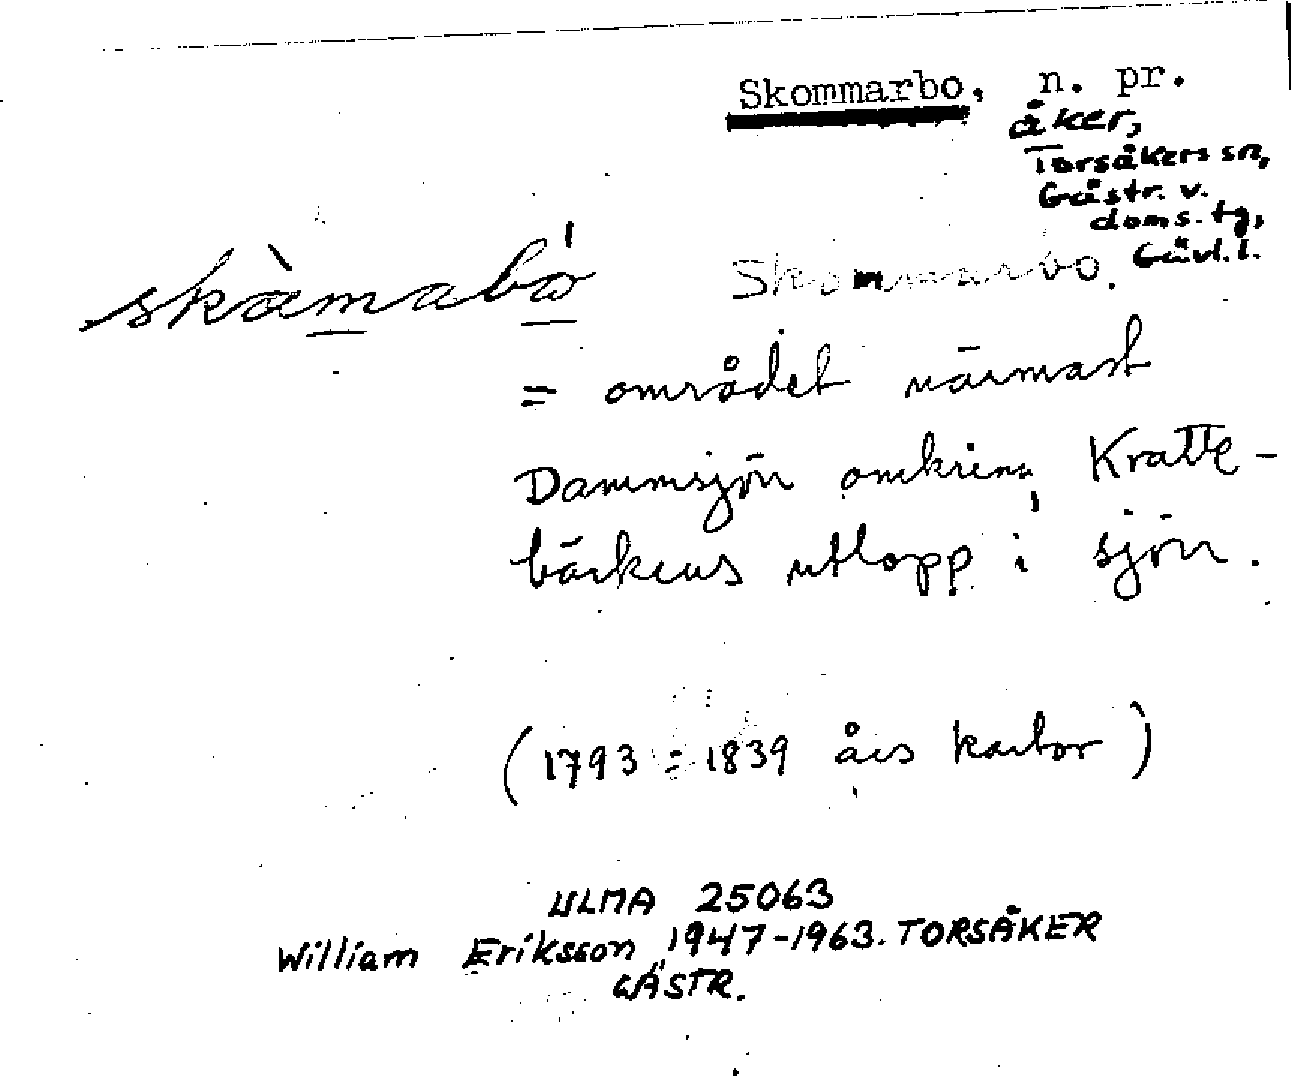 Skommarbo, n. pr.
åker,
Torsåkers sn,
Gästr. v.
doms. tg,
Gävl. l.
skàmabó Skommarbo.
= området närmast
Dammsjön omkring Kratte-
bäckens utlopp i sjön.
(1793 = 1839 års kartor)
ULMA 25063
William Eriksson 1947-1963. TORSÅKER
GÄSTR.